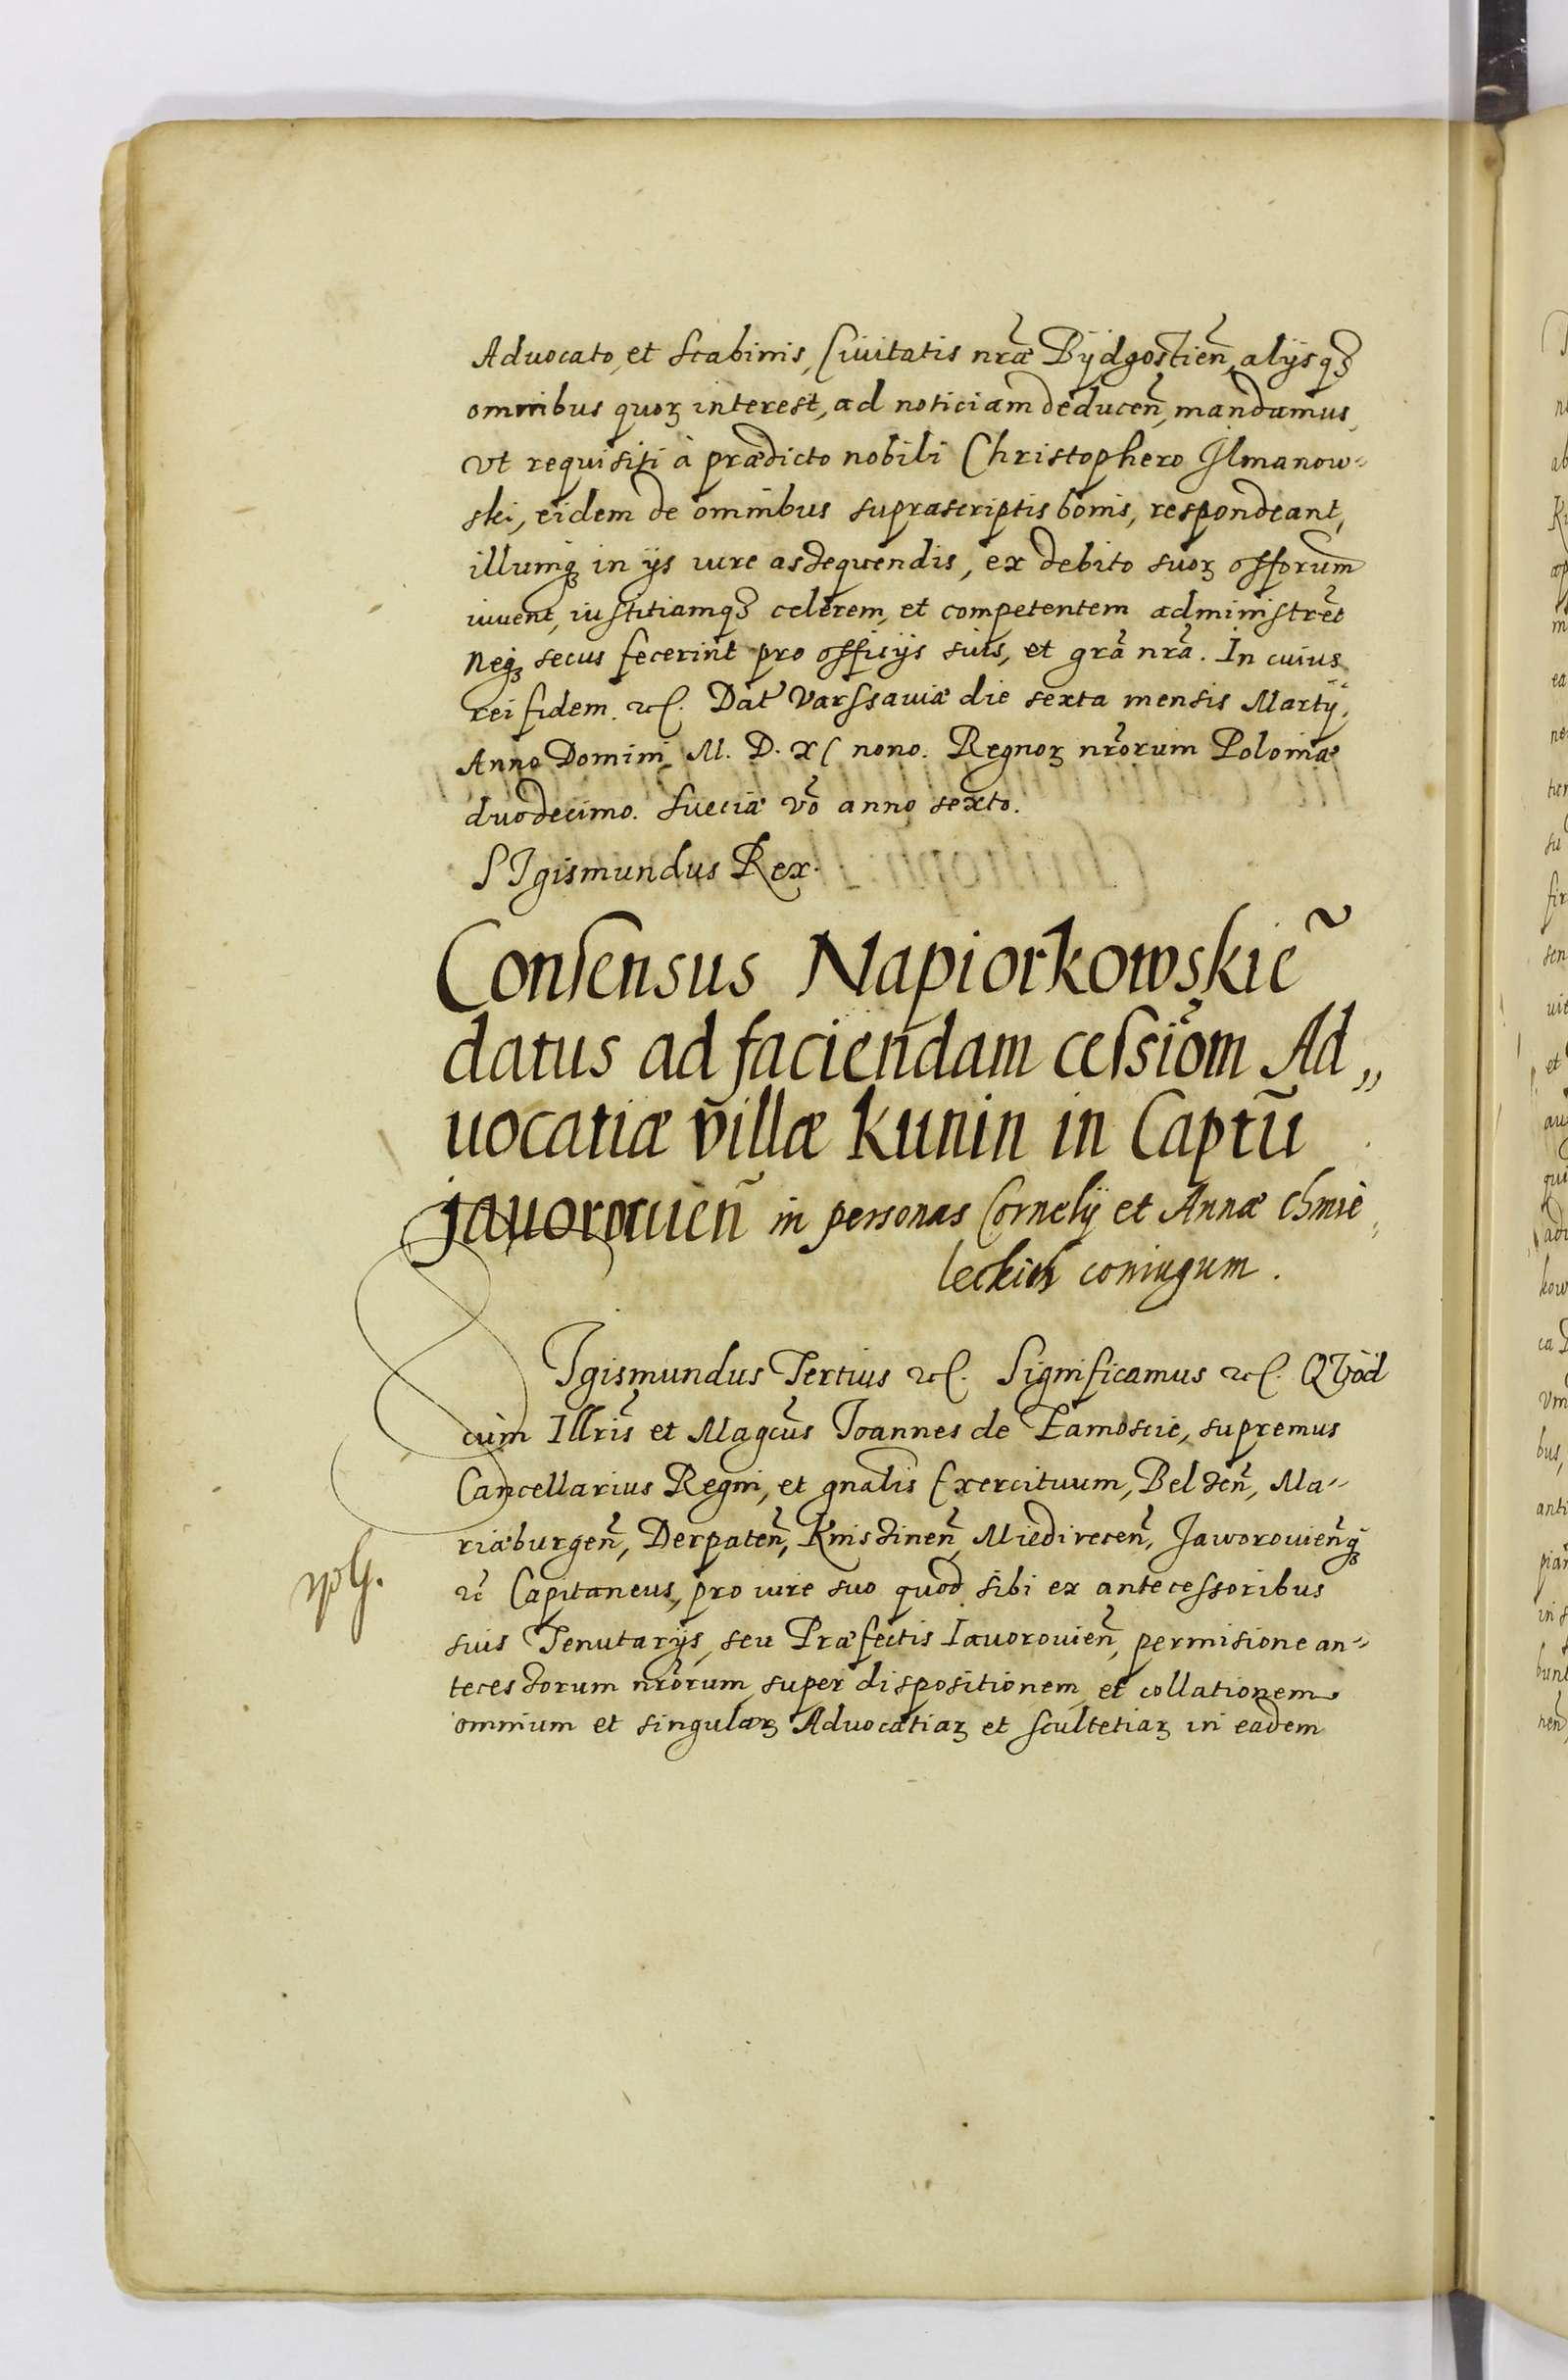 Advocato, et Scabinis, Civitatis nr̃æ Bydgostien̄, alijsqꝫ
omnibus quoꝝ interest, ad noticiam deducen̄, mandamus,
vt requisiti à prædicto nobili Christophero Jlmanow-
ski, eidem de omnibus suprascriptis bonis, respondeant,
illumqꝫ in ijs iure assequendis, ex debito suoꝝ offorum
iuvent, iustitiamqꝫ celerem, et competentem administrēt
Neqꝫ secus fecerint pro officijs suis, et grã nrã. In cuius
rei fidem. etc. Dat Varssaviæ die sexta mensis Martij,
Anno Domini M. D. XC nono. Regnoꝝ nr̃orum Poloniæ
duodecimo. Sueciæ vo anno sexto.
SIgismundus Rex.
Consensus Napiorkowskie˜
datus ad faciendam cessiom̃ Ad„
uocatiæ villæ Kunin in Captũ
javorouien̄ in personas Cornelij et Annæ Chmie
leckich coniugum.
SIgismundus Tertius etc. Significamus etc. QVod
cùm Illris̃ et Magcus̃ Joannes de Zamoscie, supremus
Cancellarius Regni, et gnalis Exercituum, Belzen̄, Ma-
riæburgen̄, Derpaten̄, Knissinen̄, Miedirecen̄, Jaworovien̄qꝫ
etc Capitaneus, pro iure suo quod sibi ex antecessoribus
suis Tenutarijs, seu Præfectis Iavorovien̄, permisione an-
tecessorum nr̃orum, super dispositionem, et collationem
omnium et singulaꝝ Advocatiaꝝ et Scultetiaꝝ in eadem